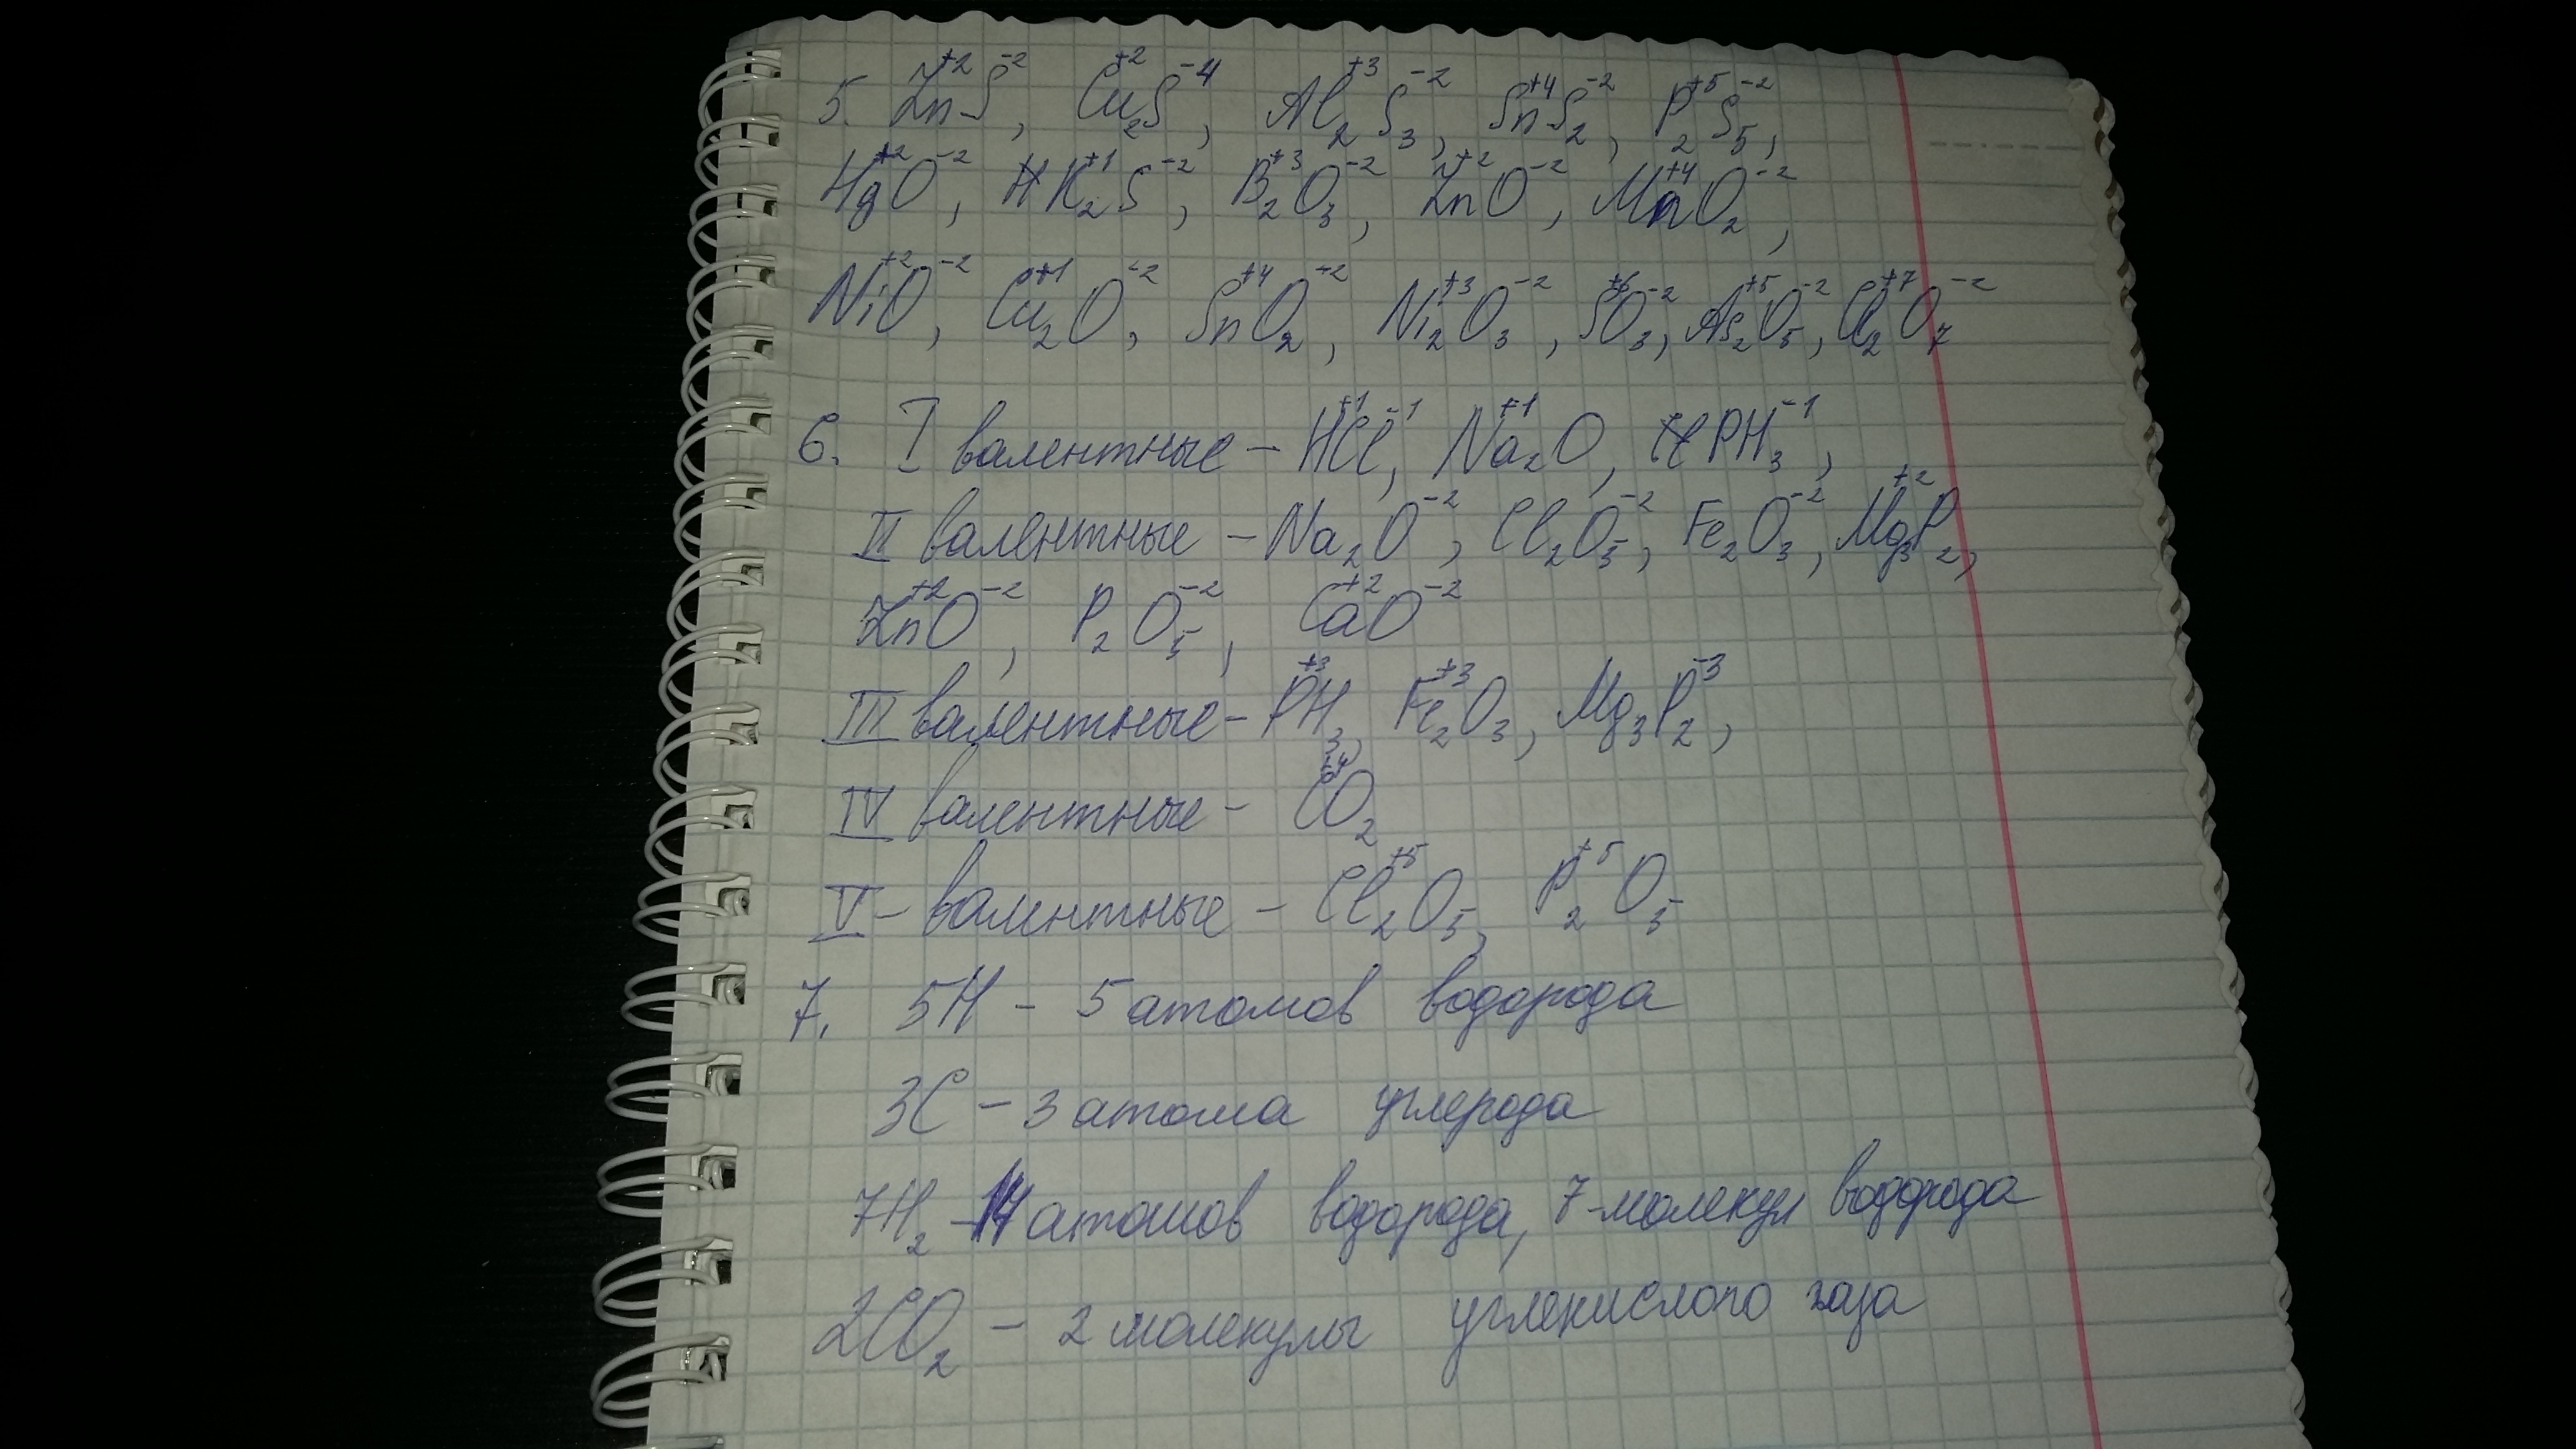 5. Zn⁺²S⁻², Cu₂⁺²S⁻⁴, Al₂⁺³S₃⁻², Sn⁺⁴S₂⁻², P₂⁺⁵S₅⁻²,
Hg⁺²O⁻², K₂⁺¹S⁻², B₂⁺³O₃⁻², Zn⁺²O⁻², Mn⁺⁴O₂⁻²,
Ni⁺²O⁻², Cu₂⁺¹O⁻², Sn⁺⁴O₂⁻², Ni₂⁺³O₃⁻², S⁺⁶O₃⁻², As₂⁺⁵O₅⁻², Cl₂⁺⁷O₇⁻²
6. I валентные – H⁺¹Cl⁻¹, Na₂⁺¹O, PH₃⁻¹,
II валентные – Na₂O⁻², Cl₂O₅⁻², Fe₂O₃⁻², Mg₃⁺²P₂,
Zn⁺²O⁻², P₂O₅⁻², Ca⁺²O⁻²
III валентные – P⁺³H₃, Fe₂⁺³O₃, Mg₃P₂⁻³,
IV валентные – C⁺⁴O₂
V – валентные – Cl₂⁺⁵O₅, P₂⁺⁵O₅
7. 5H – 5 атомов водорода
3C – 3 атома углерода
7H₂ – 14 атомов водорода, 7-молекул водорода
2CO₂ – 2 молекулы углекислого газа